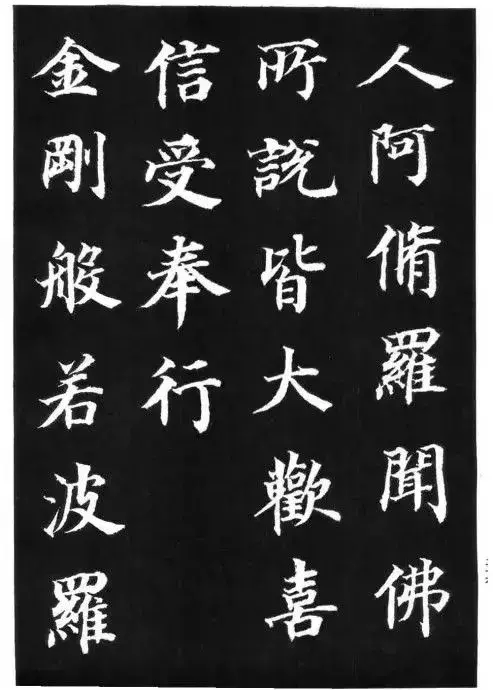 人阿脩羅聞佛
所説皆大歡喜
信受奉行
金剛般若波羅